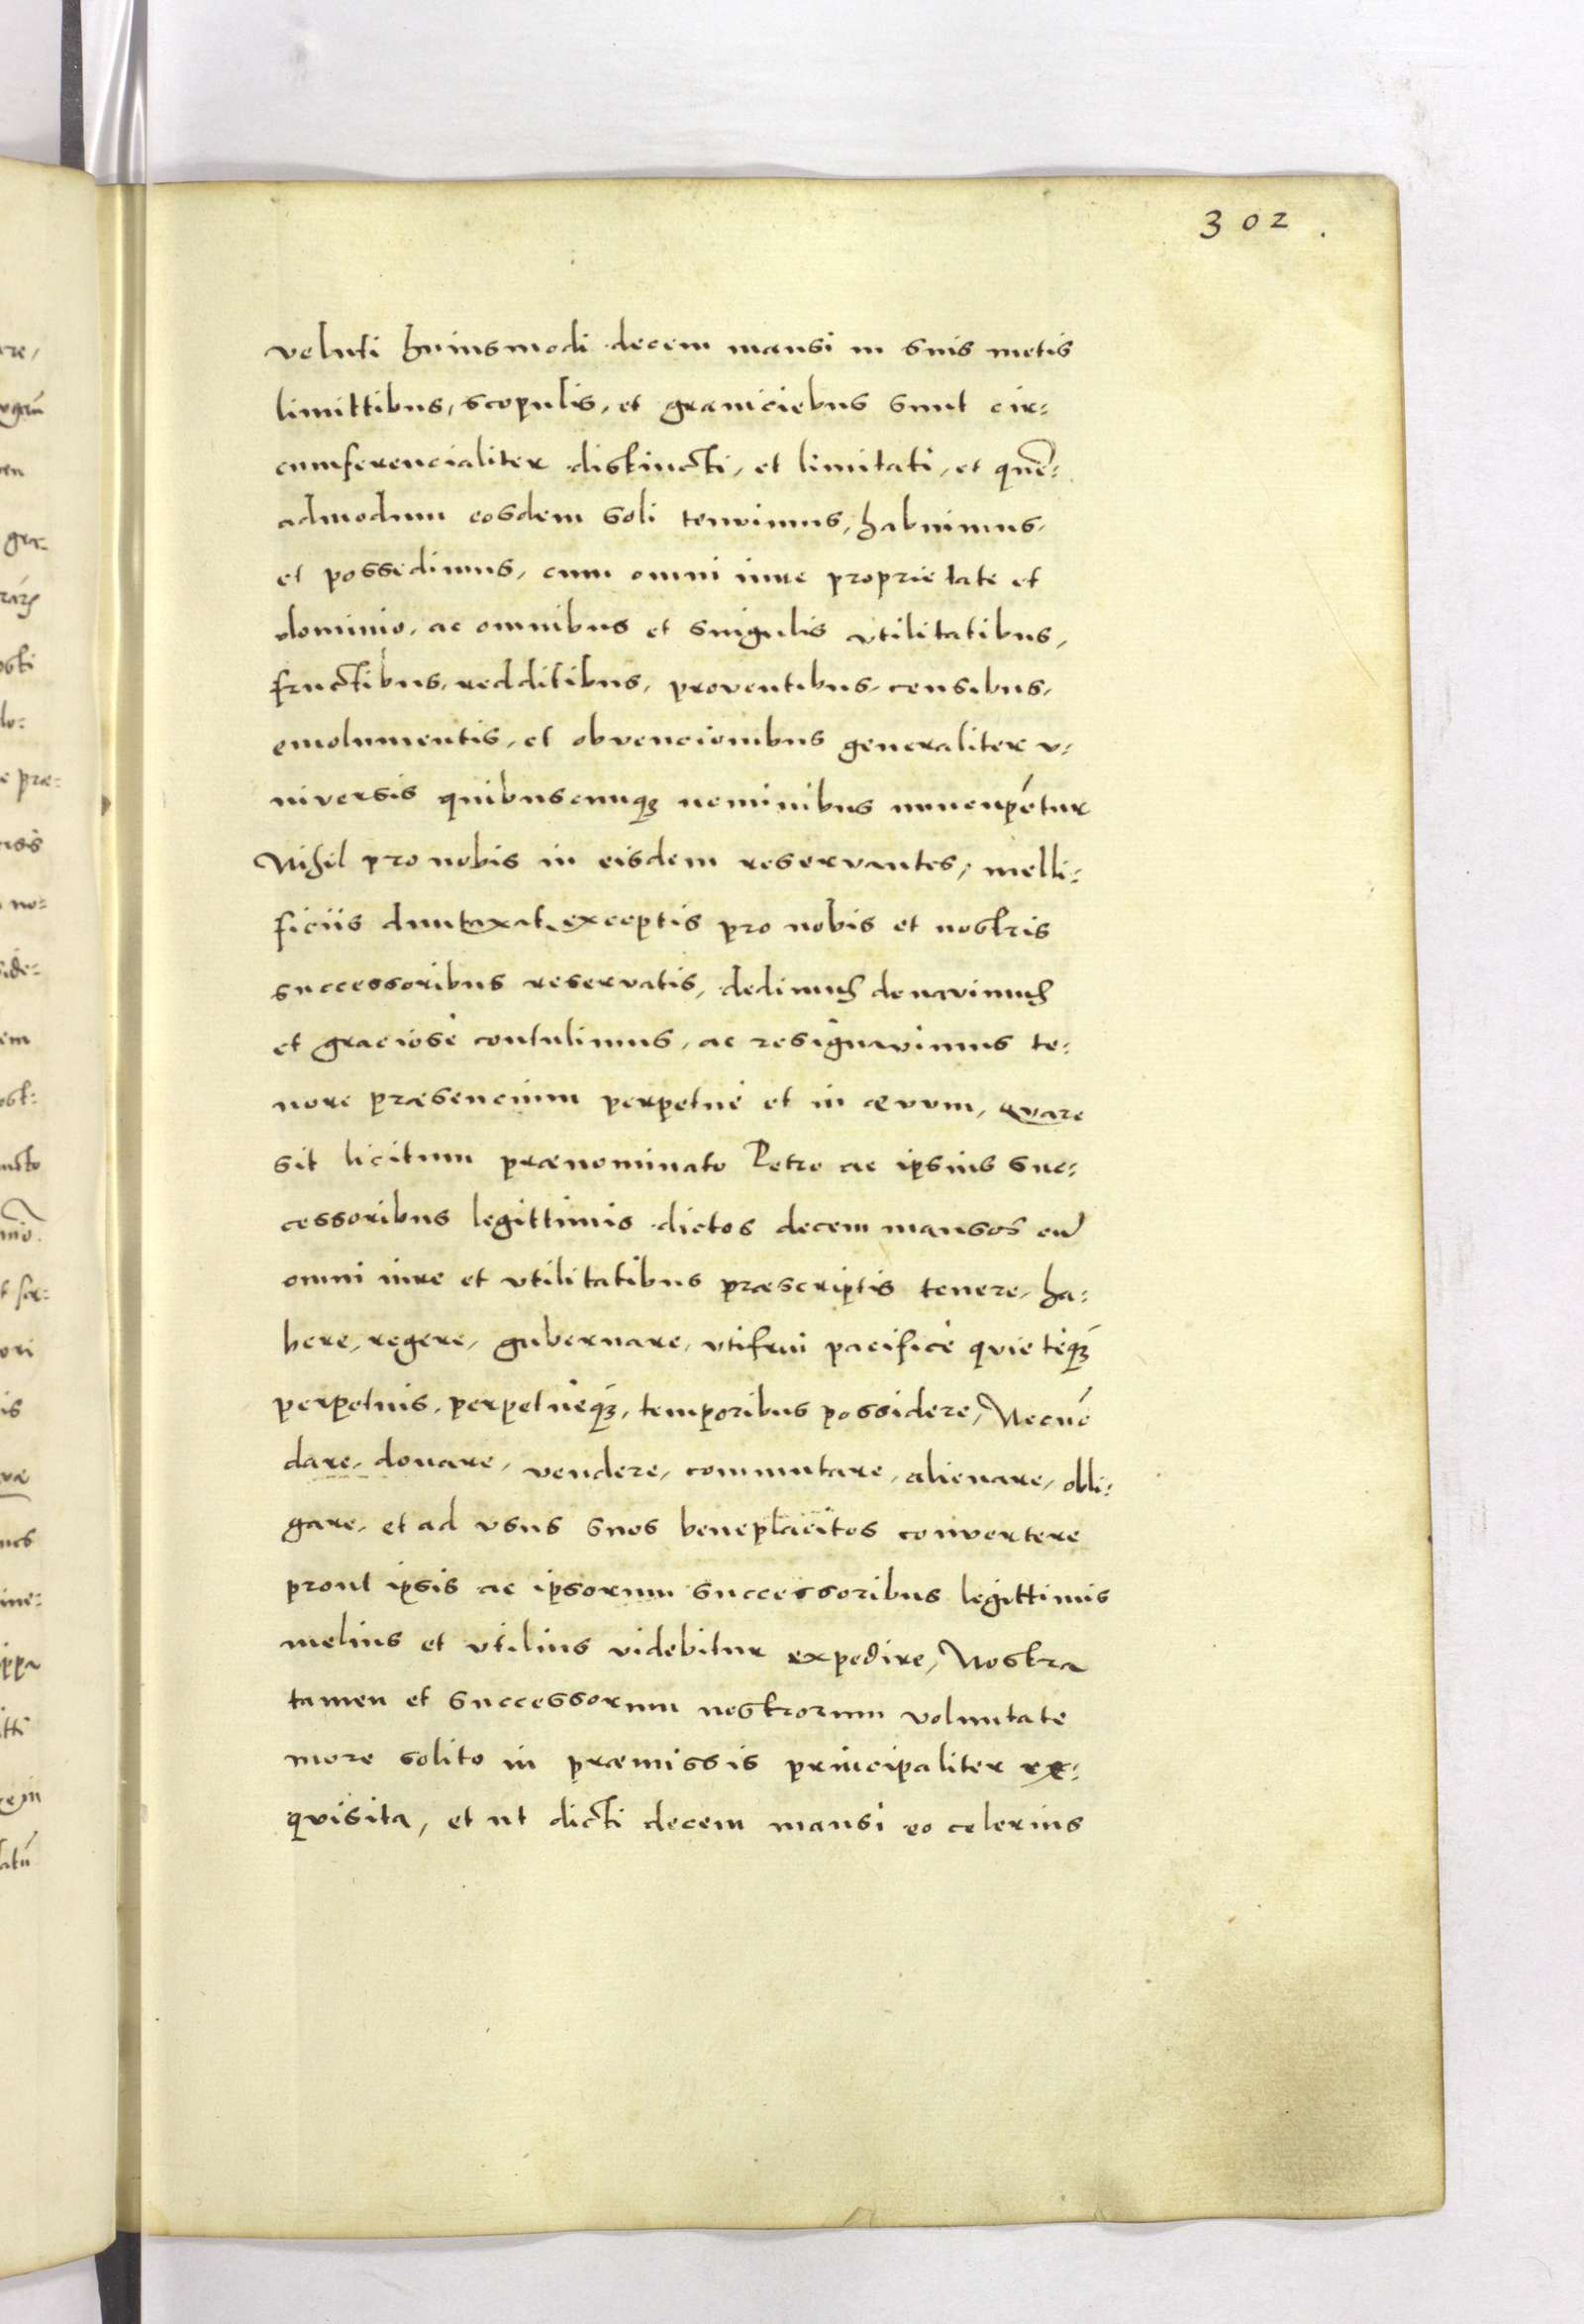 302.
veluti huiusmodi decem mansi in suis metis
limittibus, scopulis, et graniciebus sunt cir:
cumferencialiter distincti, et limitati, et quē:
admodum eosdem soli tenuimus, habuimus,
et possedimus, cum omni iure proprietate et
dominio, ac omnibus et singulis vtilitatibus,
fructibus, redditibus, proventibus, censibus,
emolumentis, et obvencionibus generaliter v:
niversis quibuscumqꝫ nominibus nuncupētur
Nihil pro nobis in eisdem reservantes, melli:
ficiis duntaxat exceptis pro nobis et nostris
successoribus reservatis, dedimus donavimus
et graciosè contulimus, ac resignavimus te:
nore præsencium perpetuè et in ævum, Qvare
sit licitum prænominato Petro ac ipsius suc:
cessoribus legittimis dictos decem mansos cū
omni iure et vtilitatibus præscriptis tenere, ha:
bere, regere, gubernare, vtifrui pacificè qvietèqꝫ
perpetuis, perpetuèqꝫ, temporibus possidere, Necnō
dare, donare, vendere, commutare, alienare, obli:
gare, et ad vsus suos beneplacitos convertere
prout ipsis ac ipsorum successoribus legittimis
melius et vtilius videbitur expedire, Nostra
tamen et successorum nostrorum voluntate
more solito in præmissis principaliter ex:
qvisita, et ut dicti decem mansi eo celerius